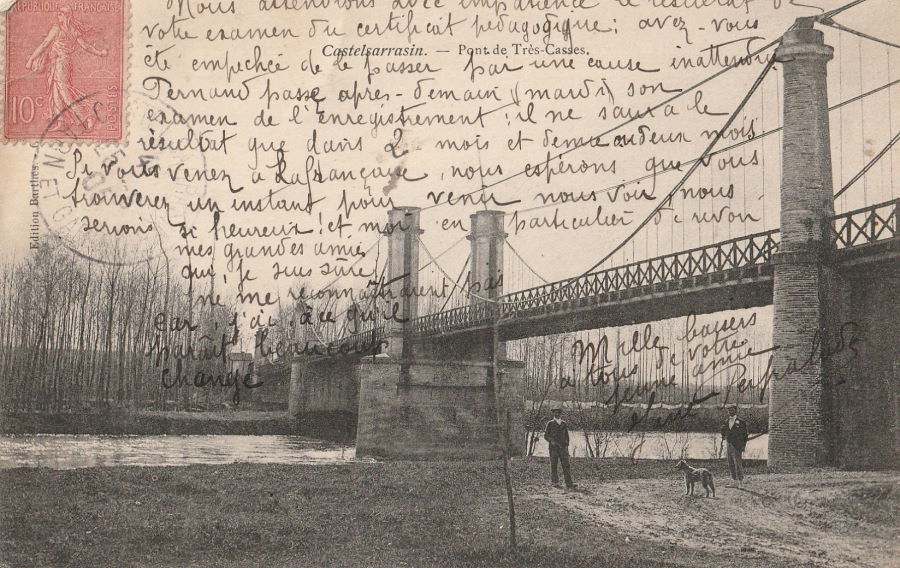 Nous attendrons avec impatience le résultat de
votre examen du certificat pédagogique; avez-vous
Castelsarrasin. — Pont de Très-Casses.
été empechée de le passer par une cause inattendue
Fernand passe après-demain (mardi) son
examen de l'Enregistrement; il ne saura le
résultat que dans 2 mois et demi ou deux mois.
Si vous venez à Lafrançaise, nous espérons que vous
trouverez un instant pour venir nous voir, nous
serions si heureux! et moi en particulier de revoir
mes grandes amies
qui, je suis sûre,
ne me reconnaîtraient pas
car, j'ai, à ce qu'il
paraît beaucoup
changé
Mille baisers
à tous de votre
jeune amie
REPUBLIQUE FRANÇAISE
10c
POSTES
TARN ET
Edition Barthes.